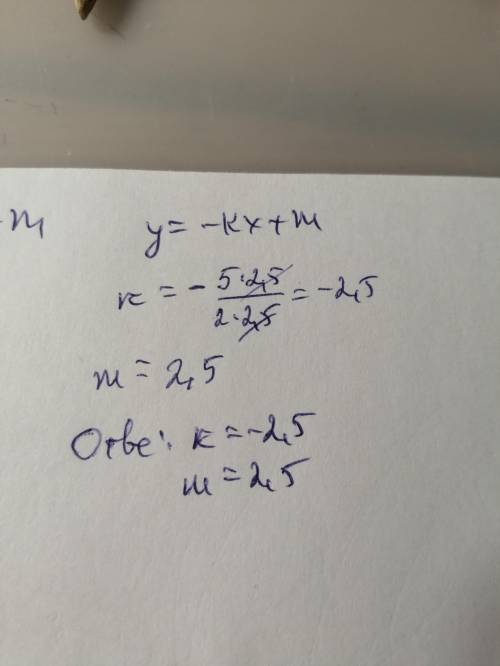 - m
y = -kx + m
k = - 5·2,5 / 2·2,5 = -2,5
m = 2,5
Отве: k = -2,5
m = 2,5